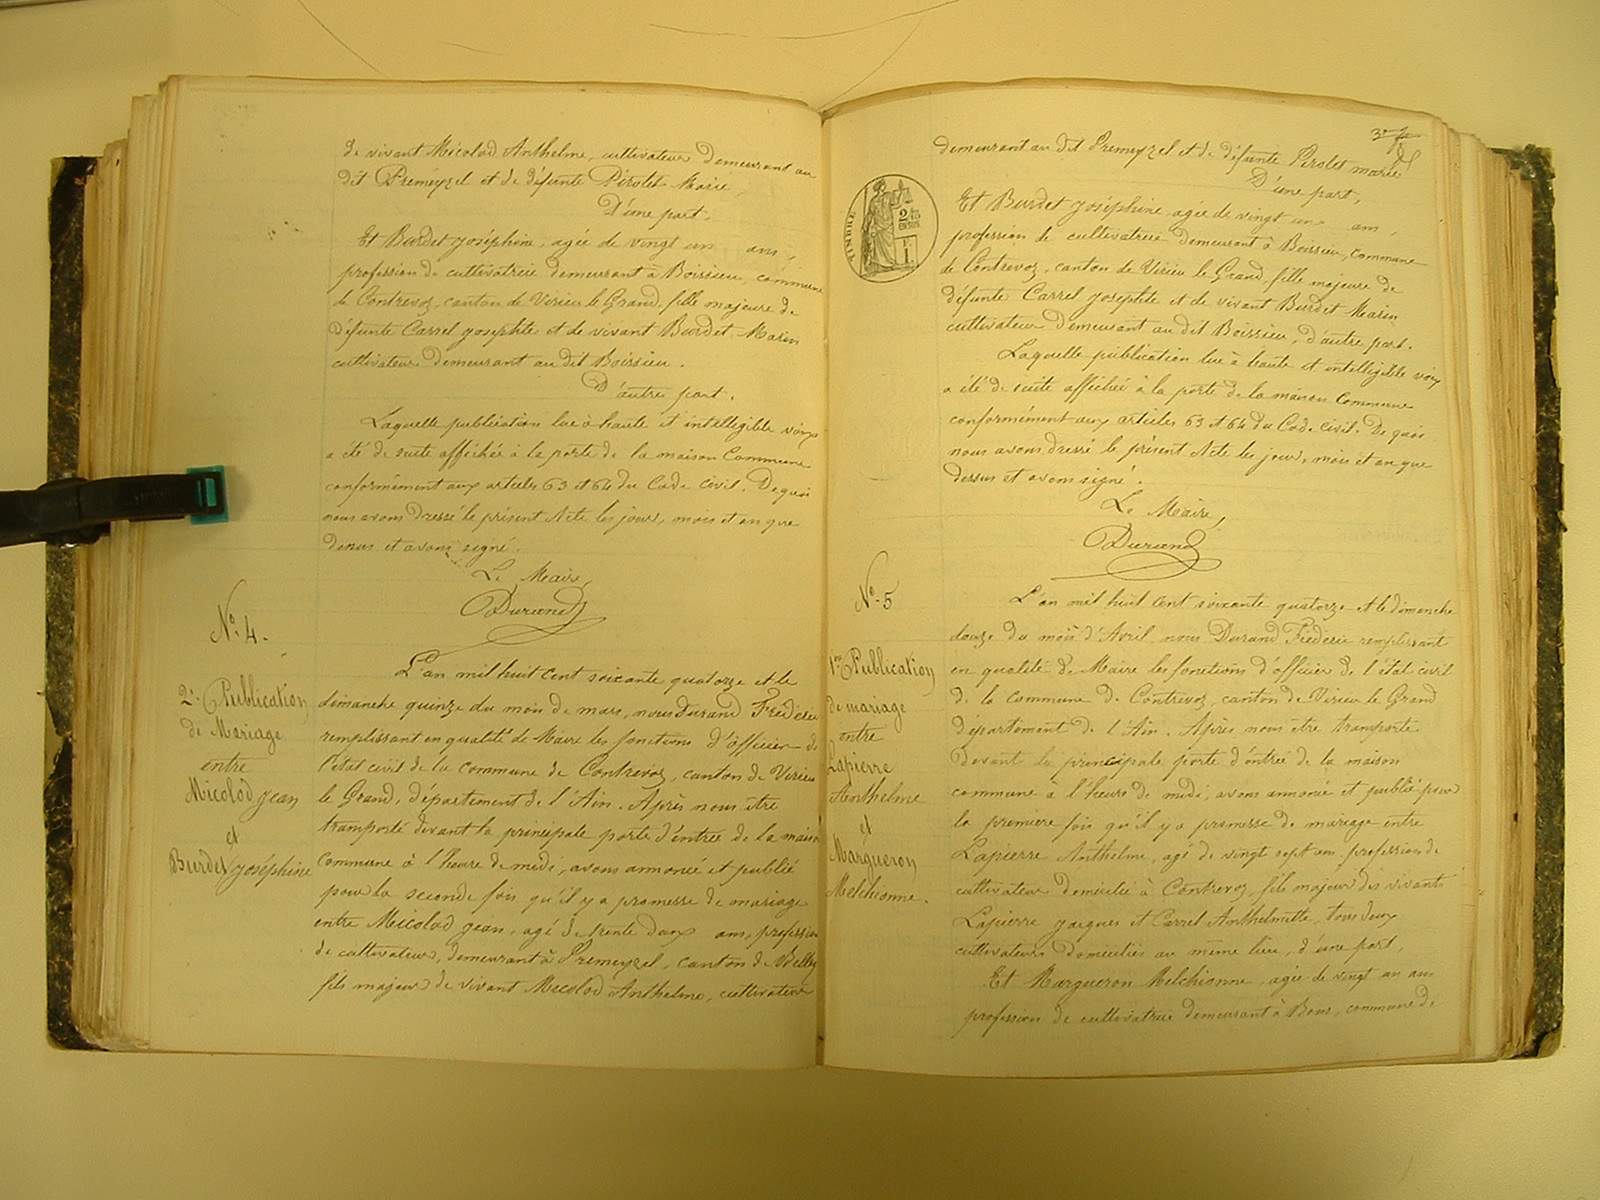 de vivant Micolod Anthelme, cultivateur demeurant au
dit Premeyzel et de défunte Pirolet Marie,
D'une part.
Et Burdet Joséphine, agée de vingt un ans,
profession de cultivatrice demeurant à Boissieu, commune
de Contrevoz, canton de Virieu le Grand, fille majeure de
défunte Carrel Josephte et de vivant Burdet Marin
cultivateur demeurant au dit Boissieu.
D'autre part.
Laquelle publication lue à haute et intelligible voix
a été de suite affichée à la porte de la maison Commune
conformément aux articles 63 et 64 du Code civil. De quoi
nous avons dressé le présent Acte les jour, mois et an que
dessus et avons signé.
Le Maire,
Durand
No. 4.
2e Publication
de Mariage
entre
Micolod Jean
et
Burdet Joséphine
L'an mil huit cent soixante quatorze et le
dimanche quinze du mois de mars, nous Durand Fréderic
remplissant en qualité de Maire les fonctions d'officier de
l'état civil de la commune de Contrevoz, canton de Virieu
le Grand, département de l'Ain. Après nous être
transporté devant la principale porte d'entrée de la maison
Commune à l'heure de midi, avons annoncé et publié
pour la seconde fois qu'il y a promesse de mariage
entre Micolod Jean, agé de trente deux ans, profession
de cultivateur, demeurant à Premeyzel, canton de Belley
fils majeur de vivant Micolod Anthelme, cultivateur
3e
demeurant au dit Premeyzel et de défunte Pirolet marie
D'une part,
TIMBRE
Et Burdet Joséphine, agée de vingt un ans,
profession de cultivatrice demeurant à Boissieu, commune
de Contrevoz, canton de Virieu le Grand, fille majeure de
défunte Carrel Josephte et de vivant Burdet Marin
cultivateur demeurant au dit Boissieu, d'autre part.
Laquelle publication lue à haute et intelligible voix
a été de suite affichée à la porte de la maison Commune
conformément aux articles 63 et 64 du Code civil. De quoi
nous avons dressé le présent Acte les jour, mois et an que
dessus et avons signé.
Le Maire,
Durand
No. 5
1re Publication
de mariage
entre
Lapierre
Anthelme
et
Margueron
Melchionne.
L'an mil huit cent soixante quatorze et le dimanche
douze du mois d'Avril nous Durand Fréderic remplissant
en qualité de Maire les fonctions d'officier de l'état civil
de la commune de Contrevoz, canton de Virieu le Grand
département de l'Ain. Après nous être transporté
devant la principale porte d'entrée de la maison
commune à l'heure de midi, avons annoncé et publié pour
la première fois qu'il y a promesse de mariage entre
Lapierre Anthelme, agé de vingt sept ans profession de
cultivateur domicilié à Contrevoz, fils majeur des vivants
Lapierre Jacques et Carrel Anthelmette, tous deux
cultivateurs domiciliés au même lieu, d'une part,
Et Margueron Melchionne, agée de vingt un ans
profession de cultivatrice demeurant à Bons, commune de